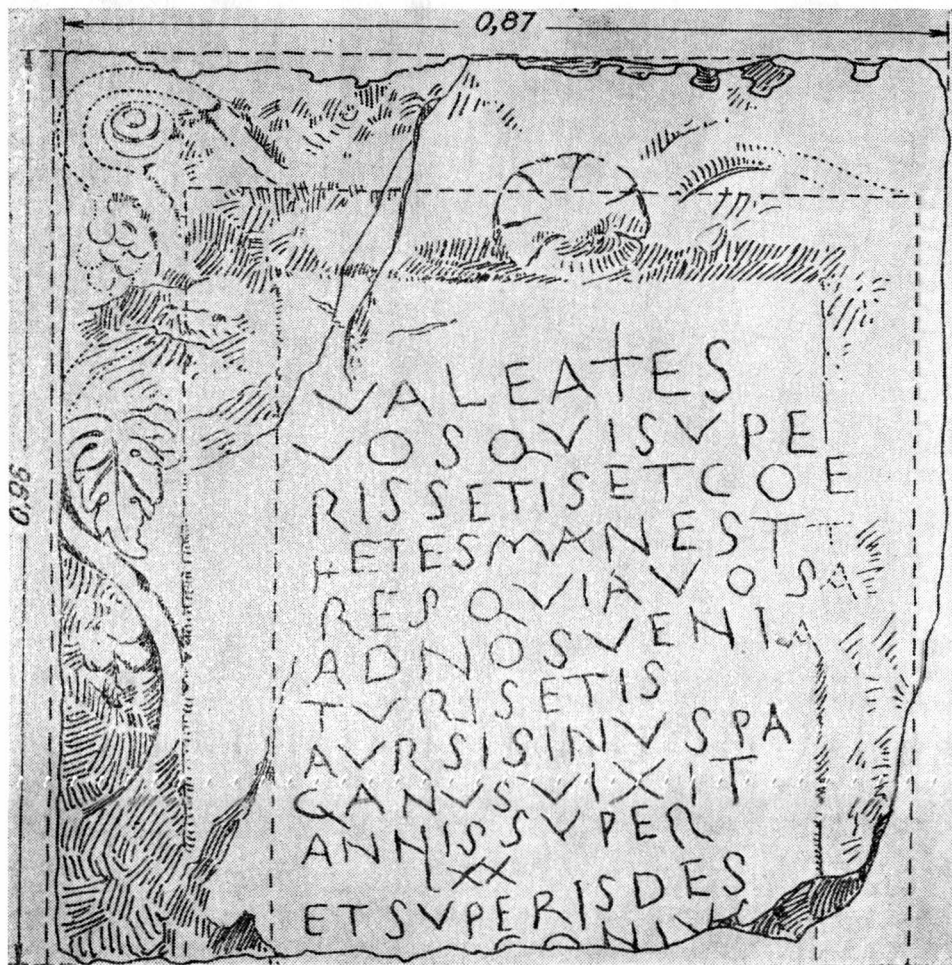 0,87
0,96
VALEATES
VOSQVISVPE
RISSETISETCOE
ⱵETESMANESTT
RESQVIAVOSA
ADNOSVENIA
TVRISETIS
AVRSISINVSPA
GANVSVIXIT
ANNISSVPER
LXX
ETSVPERISDES